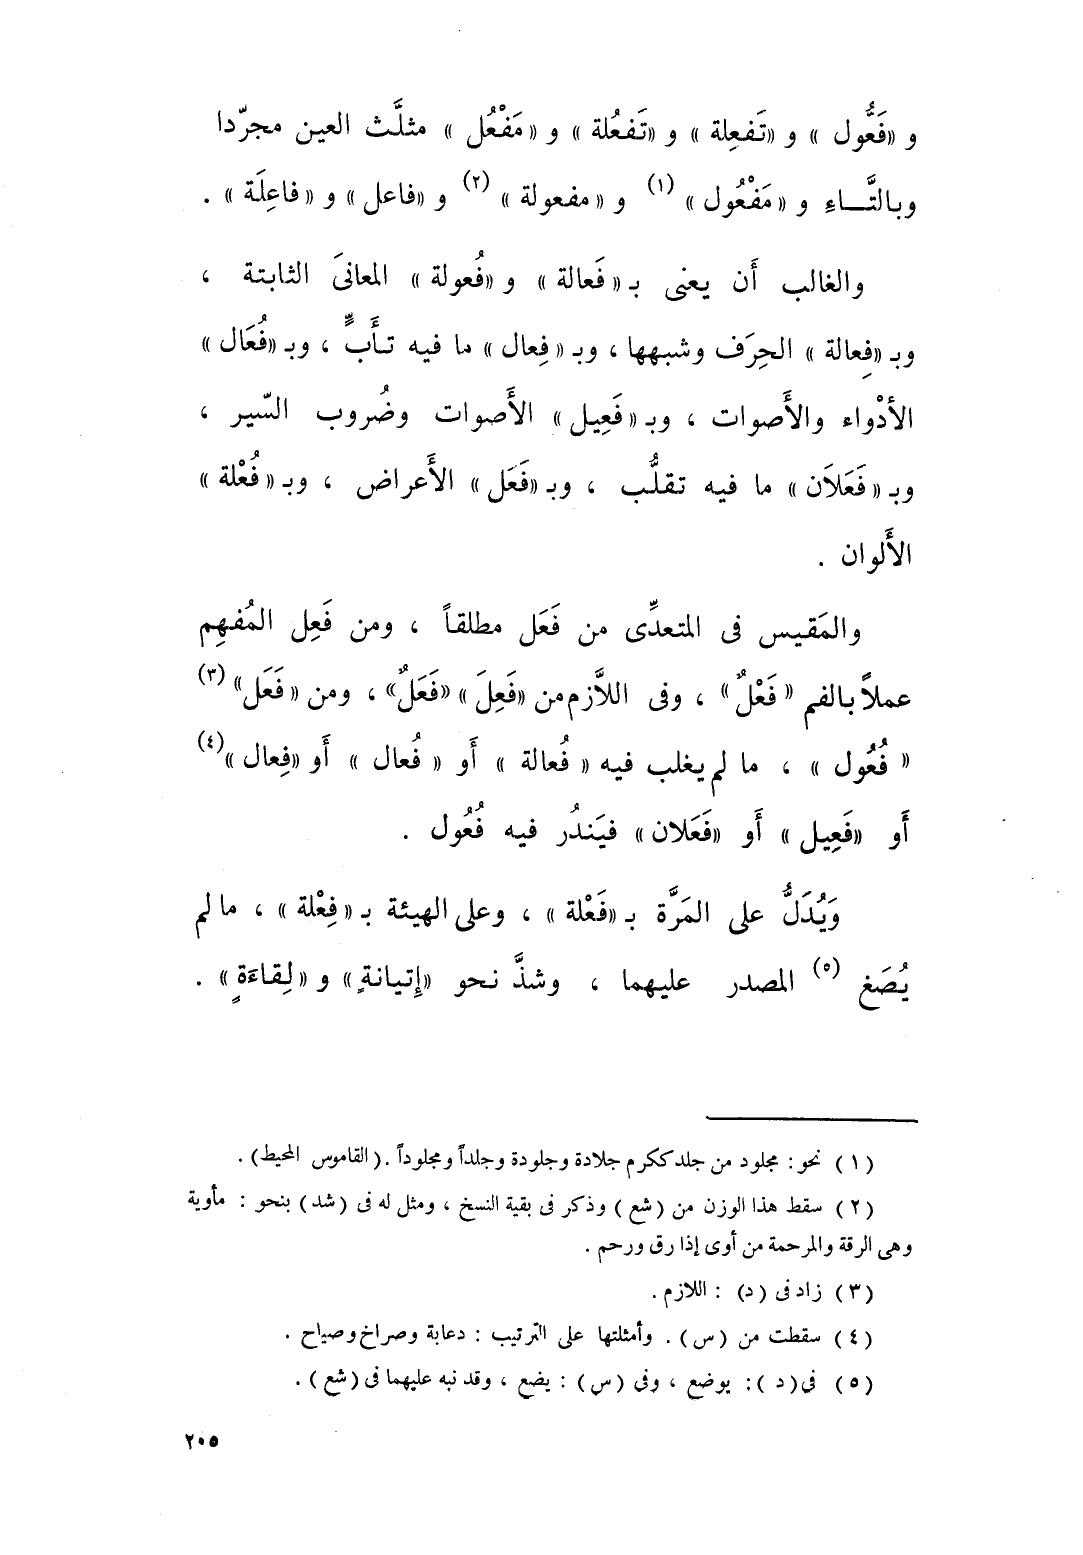 و «فَعُّول» و «تَفعِلة» و «تَفعُلة» و «مَفْعُل» مثلَّث العين مجرّدا
وبالتَّـــاءِ و «مَفْعُول» (١) و «مفعولة» (٢) و «فاعل» و «فاعِلَة» .
والغالب أَن يعنى بـ «فَعالة» و «فُعولة» المعانىَ الثابتة ،
وبـ «فِعالة» الحِرَف وشبهها ، وبـ «فِعال» ما فيه تـأَبٍّ ، وبـ «فُعَال»
الأدْواء والأَصوات ، وبـ «فَعِيل» الأَصوات وضُروب السّير ،
وبـ «فَعَلاَن» ما فيه تقلُّب ، وبـ «فَعَل» الأَعراض ، وبـ «فُعْلة»
الأَلوان .
والمَقيس فى المتعدِّى من فَعَل مطلقاً ، ومن فَعِل المُفهِم
عملاً بالفم «فَعْلٌ» ، وفى اللاَّزم من «فَعِلَ» «فَعَلٌ» ، ومن «فَعَل» (٣)
«فُعُول» ، ما لم يغلب فيه «فُعالة» أَو «فُعال» أَو «فِعال» (٤)
أَو «فَعِيل» أَو «فَعَلان» فيَندُر فيه فُعُول .
وَيُدَلُّ على المَرَّة بـ «فَعْلة» ، وعلى الهيئة بـ «فِعْلة» ، ما لم
يُصَغ (٥) المصدر عليهما ، وشذَّ نحو «إِتيانةٍ» و «لِقاءَةٍ» .
(١) نحو : مجلود من جلد ككرم جلادة وجلودة وجلداً ومجلوداً . (القاموس المحيط) .
(٢) سقط هذا الوزن من (شع) وذكر فى بقية النسخ ، ومثل له فى (شد) بنحو : مأوية
وهى الرقة والمرحمة من أوى إذا رق ورحم .
(٣) زاد فى (د) : اللازم .
(٤) سقطت من (س) . وأمثلتها على الترتيب : دعابة وصراخ وصياح .
(٥) فى (د) : يوضع ، وفى (س) : يضع ، وقد نبه عليهما فى (شع) .
٢٠٥